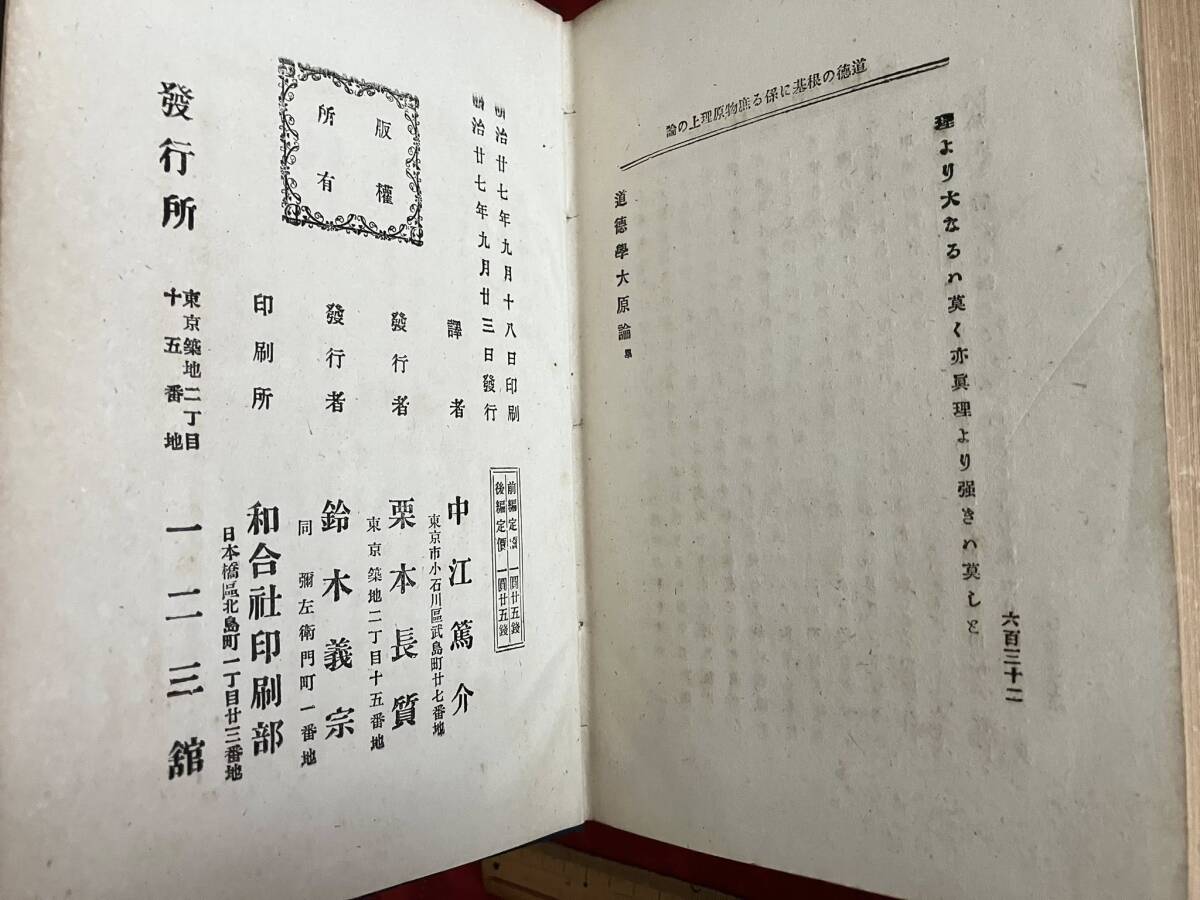 道德の根基に係る庶物原理上の論
理より大なるハ莫く亦眞理より强きハ莫しと
六百三十二
道德學大原論 畢
明治廿七年九月十八日印刷
明治廿七年九月廿三日發行
前編定價 一圓廿五錢
後編定價 一圓廿五錢
版權
所有
譯者 中江篤介
東京市小石川區武島町廿七番地
發行者 栗本長質
東京築地二丁目十五番地
發行者 鈴木義宗
同 彌左衛門町一番地
印刷所 和合社印刷部
日本橋區北島町一丁目廿三番地
發行所 東京築地二丁目
十五番地 一二三舘